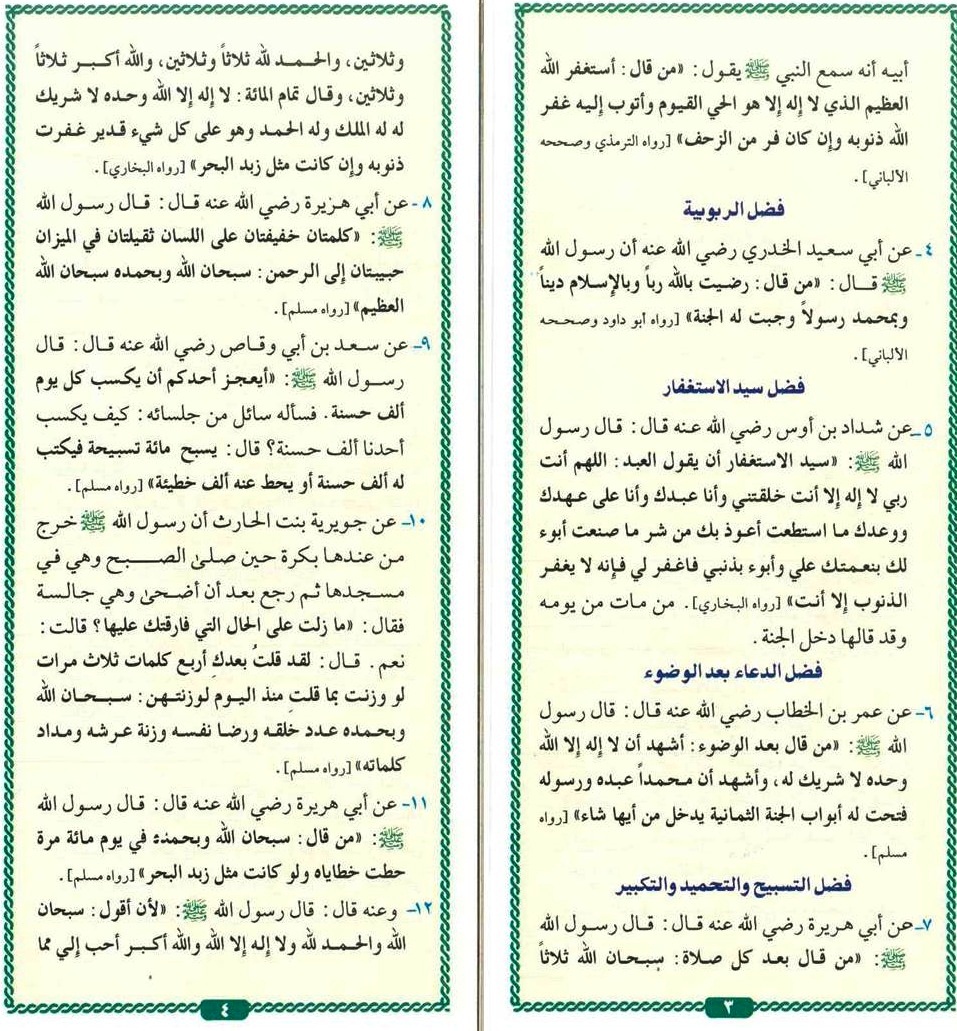 أبيه أنه سمع النبي ﷺ يقول : «من قال : أستغفر الله
العظيم الذي لا إله إلا هو الحي القيوم وأتوب إليه غفر
الله ذنوبه وإن كان فر من الزحف» [رواه الترمذي وصححه
الألباني] .
فضل الربوبية
٤ـ عن أبي سعيد الخدري رضي الله عنه أن رسول الله
ﷺ قـــال : «من قال : رضيت بالله رباً وبالإسلام ديناً
وبمحمد رسولاً وجبت له الجنة» [رواه أبو داود وصححه
الألباني] .
فضل سيد الاستغفار
٥ـ عن شداد بن أوس رضي الله عنه قال : قال رسول
الله ﷺ : «سيد الاستغفار أن يقول العبد : اللهم أنت
ربي لا إله إلا أنت خلقتني وأنا عبدك وأنا على عهدك
ووعدك ما استطعت أعوذ بك من شر ما صنعت أبوء
لك بنعمتك علي وأبوء بذنبي فاغفر لي فإنه لا يغفر
الذنوب إلا أنت» [رواه البخاري] . من مات من يومه
وقد قالها دخل الجنة .
فضل الدعاء بعد الوضوء
٦ـ عن عمر بن الخطاب رضي الله عنه قال : قال رسول
الله ﷺ : «من قال بعد الوضوء : أشهد أن لا إله إلا الله
وحده لا شريك له ، وأشهد أن محمداً عبده ورسوله
فتحت له أبواب الجنة الثمانية يدخل من أيها شاء» [رواه
مسلم] .
فضل التسبيح والتحميد والتكبير
٧ـ عن أبي هريرة رضي الله عنه قال : قال رسول الله
ﷺ : «من قال بعد كل صلاة : سبحان الله ثلاثاً
٣
وثلاثين ، والحـمـد لله ثلاثاً وثلاثين ، والله أكـبـر ثلاثاً
وثلاثين ، وقال تمام المائة : لا إله إلا الله وحده لا شريك
له له الملك وله الحمد وهو على كل شيء قدير غفرت
ذنوبه وإن كانت مثل زبد البحر» [رواه البخاري] .
٨ - عن أبي هريرة رضي الله عنه قال : قال رسول الله
ﷺ : «كلمتان خفيفتان على اللسان ثقيلتان في الميزان
حبيبتان إلى الرحمن : سبحان الله وبحمده سبحان الله
العظيم» [رواه مسلم] .
٩ـ عن سعد بن أبي وقاص رضي الله عنه قال : قال
رسول الله ﷺ : «أيعجز أحدكم أن يكسب كل يوم
ألف حسنة . فسأله سائل من جلسائه : كيف يكسب
أحدنا ألف حسنة؟ قال : يسبح مائة تسبيحة فيكتب
له ألف حسنة أو يحط عنه ألف خطيئة» [رواه مسلم] .
١٠ـ عن جويرية بنت الحارث أن رسول الله ﷺ خرج
من عندها بكرة حين صلىٰ الصـــبـح وهي في
مسجدها ثم رجع بعد أن أضحىٰ وهي جالسة
فقال : «ما زلت على الحال التي فارقتك عليها؟ قالت :
نعم . قال : لقد قلتُ بعدكِ أربع كلمات ثلاث مرات
لو وزنت بما قلتِ منذ اليوم لوزنتهن : سبحان الله
وبحمده عدد خلقه ورضا نفسه وزنة عرشه ومداد
كلماته» [رواه مسلم] .
١١ـ عن أبي هريرة رضي الله عنه قال : قال رسول الله
ﷺ : «من قال : سبحان الله وبحمده في يوم مائة مرة
حطت خطاياه ولو كانت مثل زبد البحر» [رواه مسلم] .
١٢ـ وعنه قال : قال رسول الله ﷺ : «لأن أقول : سبحان
الله والحمد لله ولا إله إلا الله والله أكبر أحب إلي مما
٤